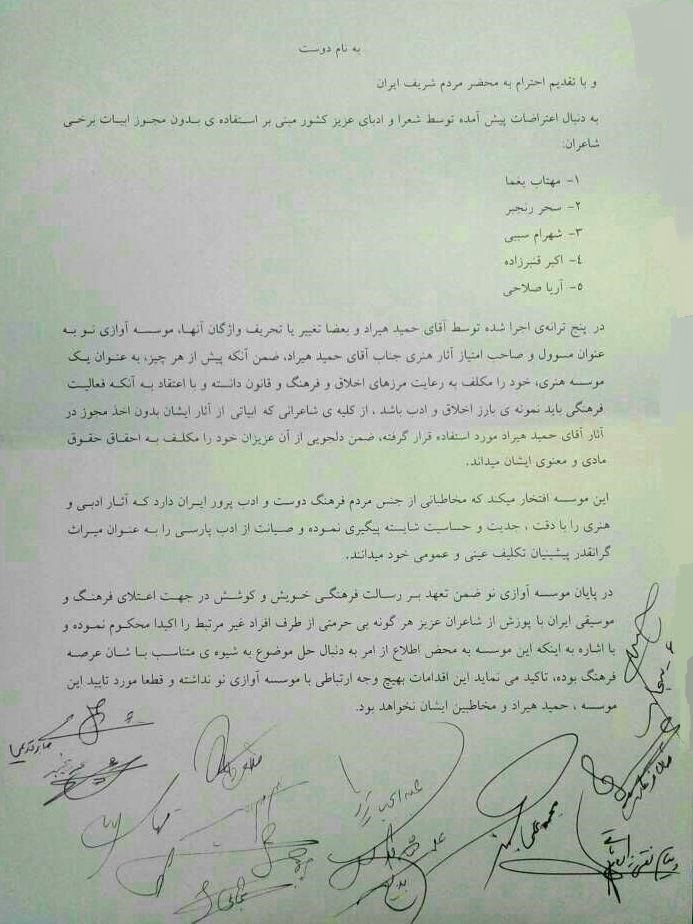 به نام دوست
و با تقدیم احترام به محضر مردم شریف ایران
به دنبال اعتراضات پیش آمده توسط شعرا و ادبای عزیز کشور مبنی بر استفاده ی بدون مجوز ابیات برخی
شاعران:
۱- مهتاب یغما
۲- سحر رنجبر
۳- شهرام سیبی
۴- اکبر قنبرزاده
۵- آریا صلاحی
در پنج ترانه‌ی اجرا شده توسط آقای حمید هیراد و بعضا تغییر یا تحریف واژگان آنها، موسسه آوازی نو به
عنوان موول و صاحب امتیاز آثار هنری جناب آقای حمید هیراد، ضمن آنکه پیش از هر چیز، به عنوان یک
موسسه هنری، خود را مکلف به رعایت مرزهای اخلاق و فرهنگ و قانون دانسته و با اعتقاد به آنکه فعالیت
فرهنگی باید نمونه ی بارز اخلاق و ادب باشد ، از کلیه ی شاعرانی که ابیاتی از آثار ایشان بدون اخذ مجوز در
آثار آقای حمید هیراد مورد استفاده قرار گرفته، ضمن دلجویی از آن عزیزان خود را مکلف به احقاق حقوق
مادی و معنوی ایشان میداند.
این موسسه افتخار میکند که مخاطبانی از جنس مردم فرهنگ دوست و ادب پرور ایران دارد که آثار ادبی و
هنری را با دقت ، جدیت و حساسیت شایسته پیگیری نموده و صیانت از ادب پارسی را به عنوان میراث
گرانقدر پیشینیان تکلیف عینی و عمومی خود میدانند.
در پایان موسسه آوازی نو ضمن تعهد بر رسالت فرهنگی خویش و کوشش در جهت اعتلای فرهنگ و
موسیقی ایران با پوزش از شاعران عزیز هر گونه بی حرمتی از طرف افراد غیر مرتبط را اکیدا محکوم نموده و
با اشاره به اینکه این موسسه به محض اطلاع از امر به دنبال حل موضوع به شیوه ی متناسب با شان عرصه
فرهنگ بوده، تاکید می نماید این اقدامات بهیچ وجه ارتباطی با موسسه آوازی نو نداشته و قطعا مورد تایید این
موسسه ، حمید هیراد و مخاطبین ایشان نخواهد بود.